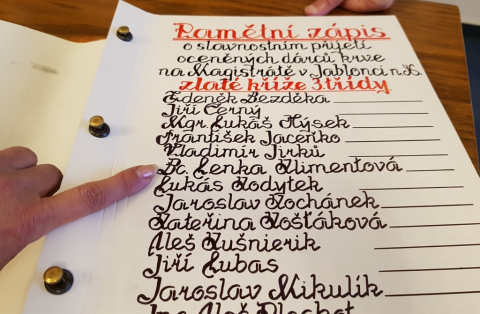 Pamětní zápis
o slavnostním přijetí
oceněných dárců krve
na Magistrátě v Jablonci n.N.
zlaté kříže 3. třídy
Zdeněk Bezděka
Jiří Černý
Mgr. Lukáš Hýsek
František Jacenko
Vladimír Jirků
Bc. Lenka Klimentová
Lukáš Kodytek
Jaroslav Kochánek
Kateřina Košťáková
Aleš Kušnierik
Jiří Lubas
Jaroslav Mikulík
Ing. Aleš